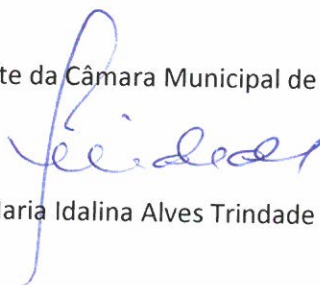 te da Câmara Municipal de
aria Idalina Alves Trindade